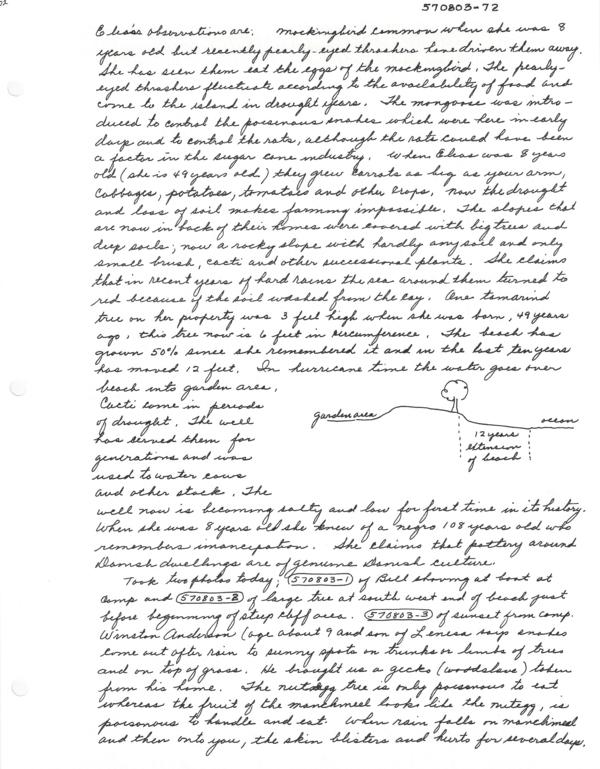 02
570803-72
Elias's observations are: Mockingbird common when she was 8
years old but recently pearly-eyed thrashers have driven them away.
She has seen them eat the eggs of the mockingbird. The pearly-
eyed thrashers fluctuate according to the availability of food and
come to the island in drought years. The mongoose was intro-
duced to control the poisonous snakes which were here in early
days and to control the rats, although the rats could have been
a factor in the sugar cane industry. When Elias was 8 years
old (she is 49 years old) they grew carrots as big as your arm,
cabbages, potatoes, tomatoes and other crops. Now the drought
and loss of soil makes farming impossible. The slopes that
are now in back of their homes were covered with big trees and
deep soils; now a rocky slope with hardly any soil and only
small brush, cacti and other successional plants. She claims
that in recent years of hard rains the sea around them turned to
red because of the soil washed from the cay. One tamarind
tree on her property was 3 feet high when she was born, 49 years
ago, this tree now is 6 feet in circumference. The beach has
grown 50% since she remembered it and in the last ten years
has moved 12 feet. In hurricane time the water goes over
beach into garden area.
Cacti come in periods
of drought. The well
has served them for
generations and was
used to water cows
and other stock. The
garden area
ocean
12 years
extension
of beach
well now is becoming salty and low for first time in its history.
When she was 8 years old she knew of a negro 108 years old who
remembers imancipation. She claims that pottery around
Danish dwellings are of genuine Danish culture.
Took two photos today; 570803-1 of Bill shoving at boat at
camp and 570803-2 of large tree at south west end of beach just
before beginning of steep cliff area. 570803-3 of sunset from camp.
Winston Anderson (age about 9 and son of Lenesa says snakes
come out after rain to sunny spots on trunks or limbs of trees
and on top of grass. He brought us a gecko (woodslave) taken
from his home. The nutmegg tree is only poisonous to eat
whereas the fruit of the manchmeel looks like the nutegg, is
poisonous to handle and eat. When rain falls on manchmeel
and then onto you, the skin blisters and hurts for several days.